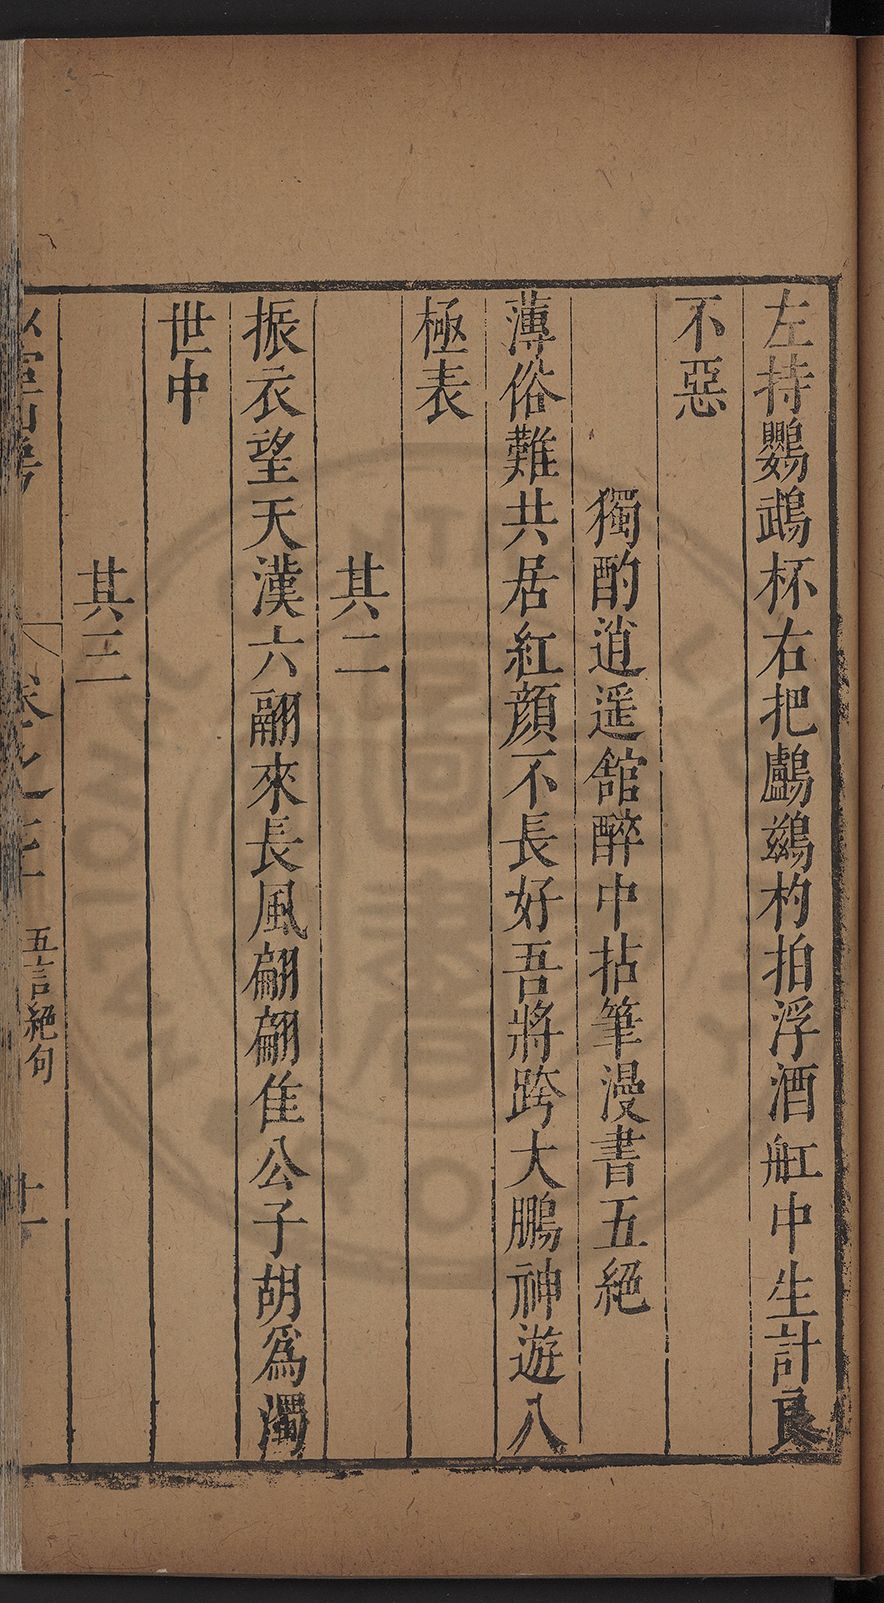 左持鸚鵡杯右把鸕鷀杓拍浮酒舡中生計良
不惡
獨酌逍遥舘醉中拈筆漫書五絕
薄俗難共居紅顔不長好吾將跨大鵬神遊八
極表
其二
振衣望天漢六翮來長風翩翩隹公子胡爲濁
世中
其三
五言絕句